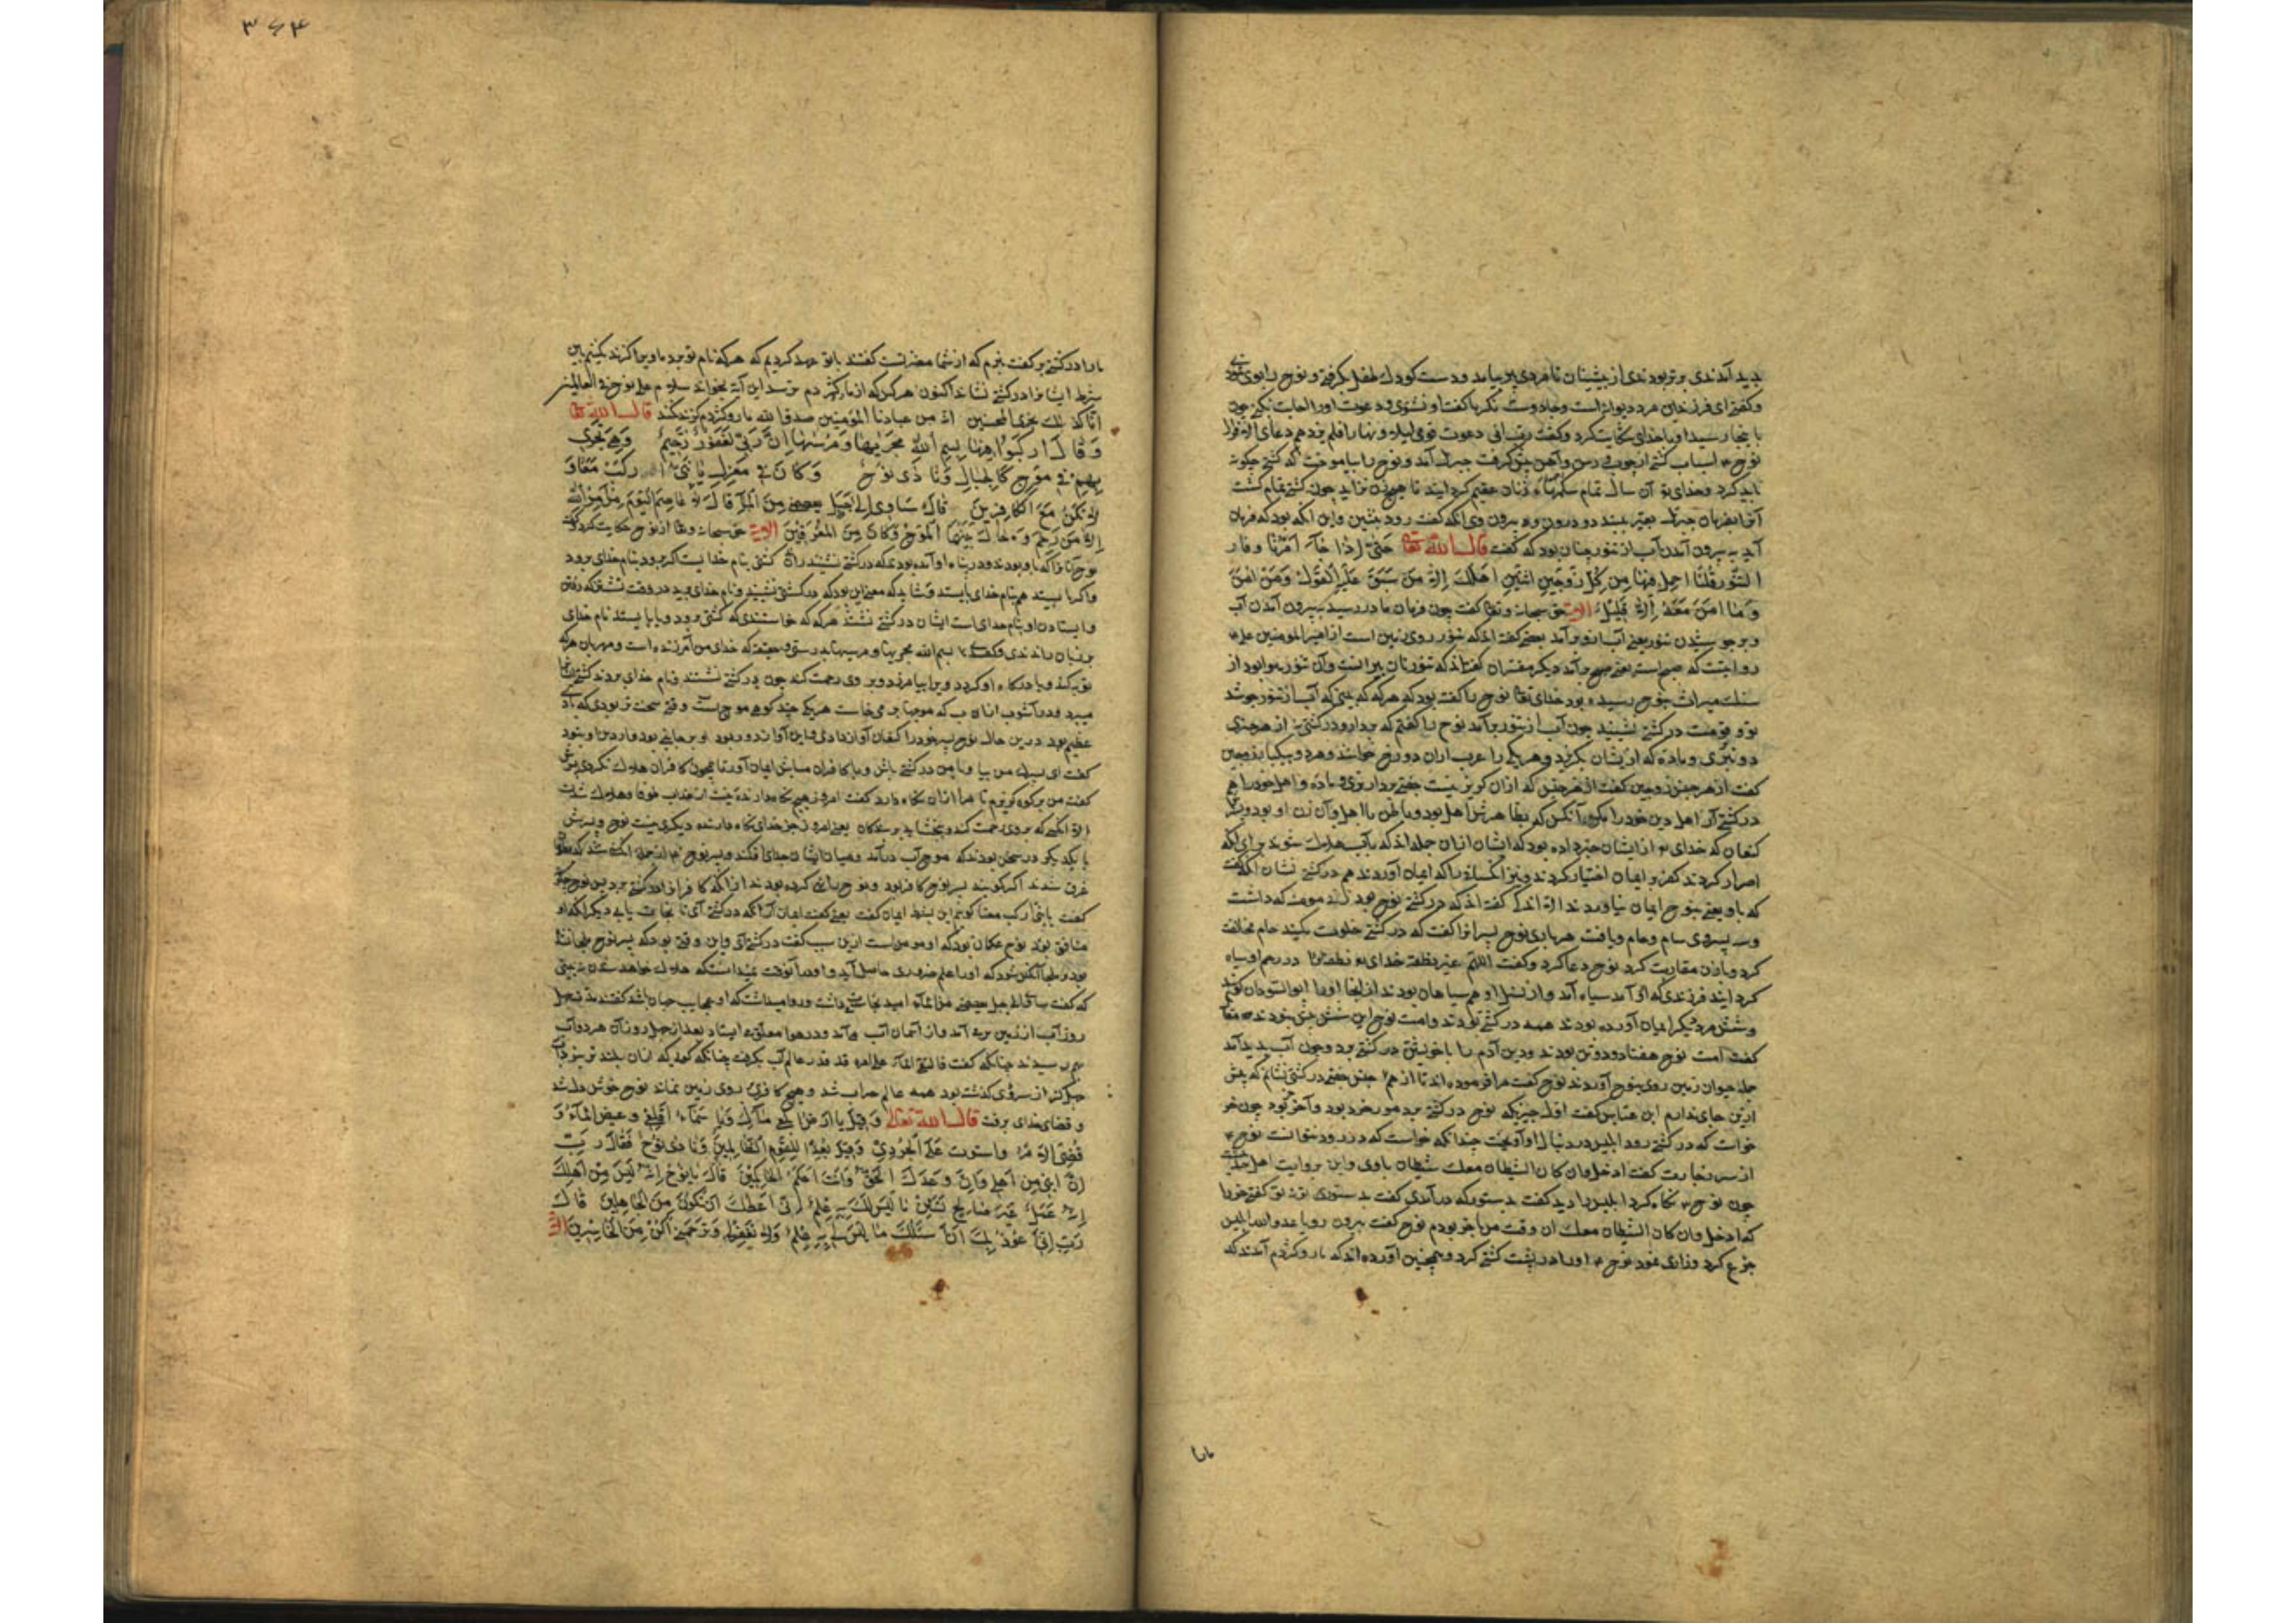 پدید آمدندی بتر بودندی از پیشینان تا مردی پیر بیامد و دست کودک طفل گرفته و نوح را بوی نمودی
و گفتی ای فرزند این مرد دیوانه است و جادوست نگر تا گفت او نشنوی و دعوت او را اجابت نکنی چون
با ینجا رسید او با خدای شکایت کرد و گفت رب انی دعوت قومی لیلا و نهارا فلم یزدهم دعای الا فرارا
نوح اسباب کشتی از چوب و رسن و آهن پیش گرفت جبرئیل آمد و نوح را بیاموخت که کشتی چگونه
باید کرد و خدای تع آن سال تمام زنان عقیم گردانید تا هیچ زن نزاید چون کشتی تمام گشت
آنرا بفرمان جبرئیل بقیر دو درون و بیرون وی آنکه گفت رود بنشین و این آنکه بود که فرمان
آید به بیرون آمدن آب از تنور چنان بود که گفت قال الله تعالی حَتّی اِذا جاءَ اَمْرُنا وَ فارَ
التَّنّورُ قُلْنَا احْمِلْ فِیها مِنْ کُلٍّ زَوْجَیْنِ اثْنَیْنِ وَ اَهْلَکَ اِلاّ مَنْ سَبَقَ عَلَیْهِ الْقَوْلُ وَ مَنْ امَنَ
وَ ما امَنَ مَعَهُ اِلاّ قَلیلٌ الایة حق سبحانه و تعا گفت چون فرمان ما در رسید به بیرون آمدن آب
و بر جوشیدن تنور یعنی آب از و برآمد بعضی گفته اند که تنور روی زمین است از امیر المومنین علی
روایتست که صبح است یعنی صبح برآمد دیگر مفسران گفته اند که تنور نان پزانست و آن تنور بود از
سنک میراث بنوح رسیده بود خدای تعا نوح را گفته بود که هرگه که بینی که آب از تنور جوشد
تو و قومت در کشتی نشینید چون آب از تنور برآمد نوح را گفتم که بردار و در کشتی بر از هر چیزی
دو نری و ماده که از یشان بگزید و هر یکی را عرب ازان دو زوج خوانند و هر دو بیکجا زوجین
گفت از هر جنس زوجین گفت از هر جنس که ازان گریز نیست جفتی بردار نری و ماده و اهل خود را هم
در کشتی آر اهل دین خود را مگر آنکس که بظاهرش اهل بود و باطن نااهل و آن زن او بود و پسر
کنعان که خدای تع از ایشان خبر داده بود که ایشان ازان جمله اند که بآب هلاک شوند برای آنکه
اصرار کردند کفر بر ایمان اختیار کردند و نیز آنکسان را که ایمان آوردند هم در کشتی نشان آنکه گفت
که با و یعنی بنوح ایمان نیاوردند الا اندکی گفته اند که در کشتی نوح بود زن مومنه که داشت
وسه پسر وی سام و حام و یافت هر باری نوح پسرانرا گفت که در کشتی خلوت مکنید حام مخالفت
کرد و با زن مقاربت کرد نوح دعا کرد و گفت اللهم غیر نطفته خدای تع نطفه را در رحم او سیاه
گردانید فرزندی که آمد سیاه آمد و از نسل او هم سیاهان بودند از اینجا او را ابو السودان گویند
وشش مرد دیگر ایمان آورده بودند همه در کشتی بودند و امت نوح این شش تن بودند
گفت امت نوح هفتاد و دو تن بودند و تن آدم را با خویشتن در کشتی برد و چون آب پدید آمد
جمله حیوان زمین روی بنوح آوردند نوح گفت مرا فرموده اند تا از هر جنس جفتی در کشتی نشانم که بیش
ازین جای ندارم ابن عباس گفت اول چیزیکه نوح در کشتی برد مور خرد بود و آخر خر بود چون خر
خواست که در کشتی رود ابلیس در دنبال او آویخت چندانکه خواست که در رود نتوانست نوح
از سر گفت ادخل وان کان الشیطان معک شیطان باوی و این بروایت اهل
چون نوح نگاه کرد ابلیس را دید گفت بدستور که درآمدی گفت بدستوری تو نه تو گفتی خر را
که ادخل وان کان الشیطان معک ان وقت من با خر بودم نوح گفت بیرون رو یا عدو الله ابلیس
جزع کرد و زاری نمود نوح او را در پشت کشتی کرد و همچنین آورده اند که مار و کژدم آمدند که
مارا
۳۶۴
مارا در کشتی بر گفت نبرم که از شما مضرتست گفتند با تو عهد کردیم که هر که نام تو برد ما ویرا گزند نکنیم باین
شرط ایشانرا در کشتی نشاند اکنون هر کس که از مار و کژدم ترسد این آیة بخواند سلام علی نوح فی العالمین
انا کذلک نجزی المحسنین انه من عبادنا المؤمنین صدق الله مار و کژدم گزند نکند قال الله تعا
وَ قالَ ارْکَبُوا فیها بِسْمِ اللهِ مَجْریها وَ مُرْسیها اِنَّ رَبّی لَغَفُورٌ رَحیمٌ وَ هِیَ تَجْری
بِهِمْ فی مَوْجٍ کَالْجِبالِ وَ نادی نُوحٌ وَ کانَ فی مَعْزِلٍ یا بُنَیَّ ارْکَبْ مَعَنا وَ
لا تَکُنْ مَعَ الْکافِرینَ قالَ سَاوی اِلی جَبَلٍ یعصمنی مِنَ الْماءِ قالَ لا عاصِمَ الْیَوْمَ مِنْ اَمْرِ اللهِ
اِلاّ مَنْ رَحِمَ وَ حالَ بَیْنَهُمَا الْمَوْجُ فَکانَ مِنَ الْمُغْرَقینَ الایة حق سبحانه و تعا از نوح حکایت کرد که گفت
نوح آنانرا که باو بودند و در پناه او آمده بودند که در کشتی نشینند راندن کشتی بنام خدایست اگر برود بنام خدای برود
واگر بایستد هم بنام خدای بایستد و شاید که معنی این بود که در کشتی نشینید و نام خدای برید در وقت نشستن که رفتن
و ایستادن او بنام خدای است ایشان در کشتی نشستند هرگه که خواستندی که کشتی برود و یا بایستد نام خدای
بر زبان راندندی و گفتندی بسم الله مجریها و مرسیها بدرستی و حقیقت که خدای من آمرزنده است و مهربان هر که
توبه کند و با درگاه او گردد ویرا بیامرزد و بر وی رحمت کند چون در کشتی نشستند و نام خدای بردند کشتی
میبرد و در آشوب آن آب که موجها بر می خاست هر یکی چند کوهی موج است و قتی سخت تر بودی که باد
عظیم بود درین حال نوح پسر خود را کنعان آواز دادی و این آواز دور بود او بر جایی بود و از دین او نبود
گفت ای پسرک من بیا و با من در کشتی باش و با کافران مباش ایمان آور تا همچون کافران هلاک نگردی پسرش
گفت من بر کوه گریزم تا مرا از آن نگاه دارد گفت امروز هیچ نگاه دارنده نیست از عذاب خدا و هلاک شدن
الا آنکسی که بر وی رحمت کند و ببخشاید بر بندگان یعنی امروز جز خدای نگاه دارنده دیگری نیست نوح و پسرش
با یکدیگر در سخن بودند که موج آب درآمد و میان ایشان جدای افکند و پسر نوح از جمله آنکسان شد که
غرق شدند اگر گویند پسر نوح کافر بود و نوح دعا بد کرده بود از آنکه کافرانرا در کشتی برد پس نوح چگونه
گفت یا بنی ارکب معنا گوییم این بشرط ایمان گفت یعنی گفت ایمان آر آنگه در کشتی آی تا نجات یابی دیگر آنکه او
منافق بود نوح گمان بود که او مومن است ازین سبب گفت در کشتی آی و این وقتی بود که پسر نوح
بود و ملجا آنکس بود که او را علم ضروری حاصل آید و او را آنوقت نمیدانست که هلاک خواهد شدن نه بینی
که گفت ساوی الی جبل یعصمنی من الماء امید نجات میداشت و روا میداشت که او بجایب جان باشد گفتند چهل
روز آب از زمین برمی آمد و از آسمان آب می آمد و در هوا معلق می ایستاد بعد از چهل روز آن هر دو آب
بهم رسیدند چنانکه گفت فالتقی الماء علی امر قد قدر عالم آب بگرفت چنانکه کوهی که ازان بلند تر نبود آب
چهل گز از سر وی گذشته بود همه عالم خراب شد و هیچ کافری بر روی زمین نماند نوح خوش دل شد
و قضای خدای برفت قال الله تعالی وَ قیلَ یا اَرْضُ ابْلَعی ماءَکِ وَ یا سَماءُ اَقْلِعی وَ غیضَ الْماءُ وَ
قُضِیَ الاَمْرُ واستوت عَلَی الْجُودِیِّ وَ قیلَ بُعْدًا لِلْقَوْمِ الظّالِمینَ وَ نادی نُوحٌ رَبَّهُ فَقالَ رَبِّ
اِنَّ ابْنی مِنْ اَهْلی وَ اِنَّ وَعْدَکَ الْحَقُّ وَ اَنْتَ اَحْکَمُ الْحاکِمینَ قالَ یا نُوحُ اِنَّهُ لَیْسَ مِنْ اَهْلِکَ
اِنَّهُ عَمَلٌ غَیْرُ صالِحٍ فَلا تَسْئَلْنِ ما لَیْسَ لَکَ بِهِ عِلْمٌ اِنّی اَعِظُکَ اَنْ تَکُونَ مِنَ الْجاهِلینَ قالَ
رَبِّ اِنّی اَعُوذُ بِکَ اَنْ اَسْئَلَکَ ما لَیْسَ لی بِهِ عِلْمٌ وَ اِلاّ تَغْفِرْ لی وَ تَرْحَمْنی اَکُنْ مِنَ الْخاسِرینَ الایة